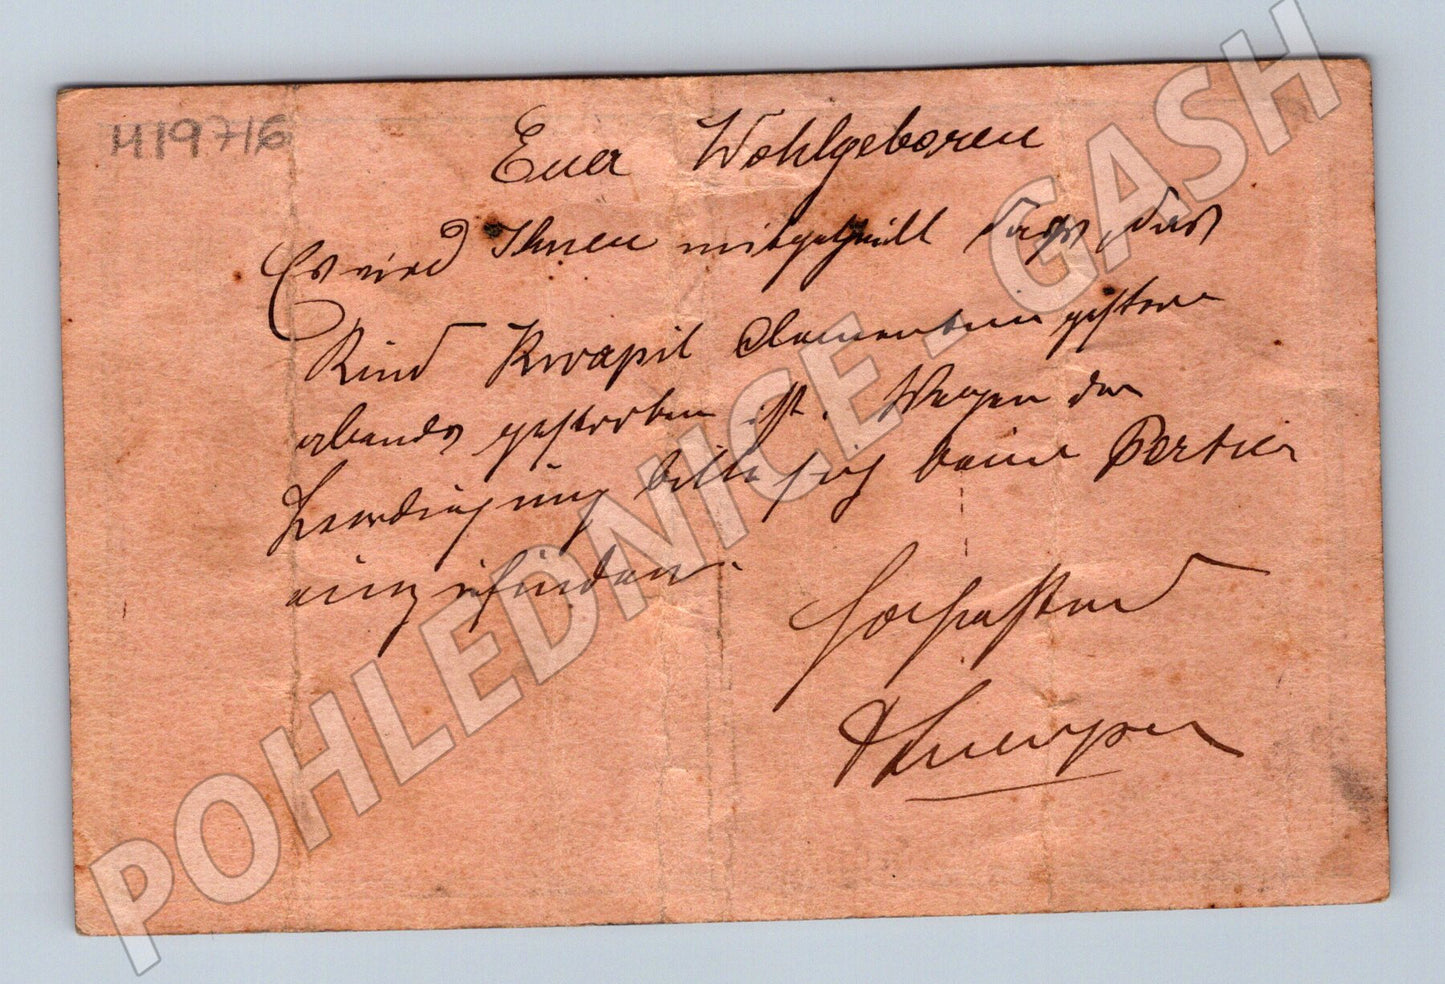 419716
Euer Wohlgeboren
Es wird Ihnen mitgetheilt dass das
Kind Kwapil Clementin gestern
abends gestorben ist. Wegen der
Beerdigung bitte sich beim Portier
einzufinden.
POHLEDNICE - GASH